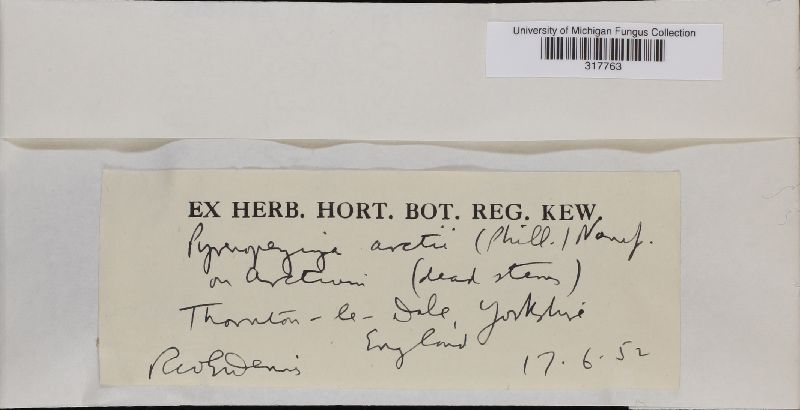 University of Michigan Fungus Collection
317763
EX HERB. HORT. BOT. REG. KEW.
Pyrenopeziza arctii (Phill.) Nannf.
on Arctium (dead stems)
Thornton-le-Dale, Yorkshire
England
R.W.G. Dennis 17.6.52